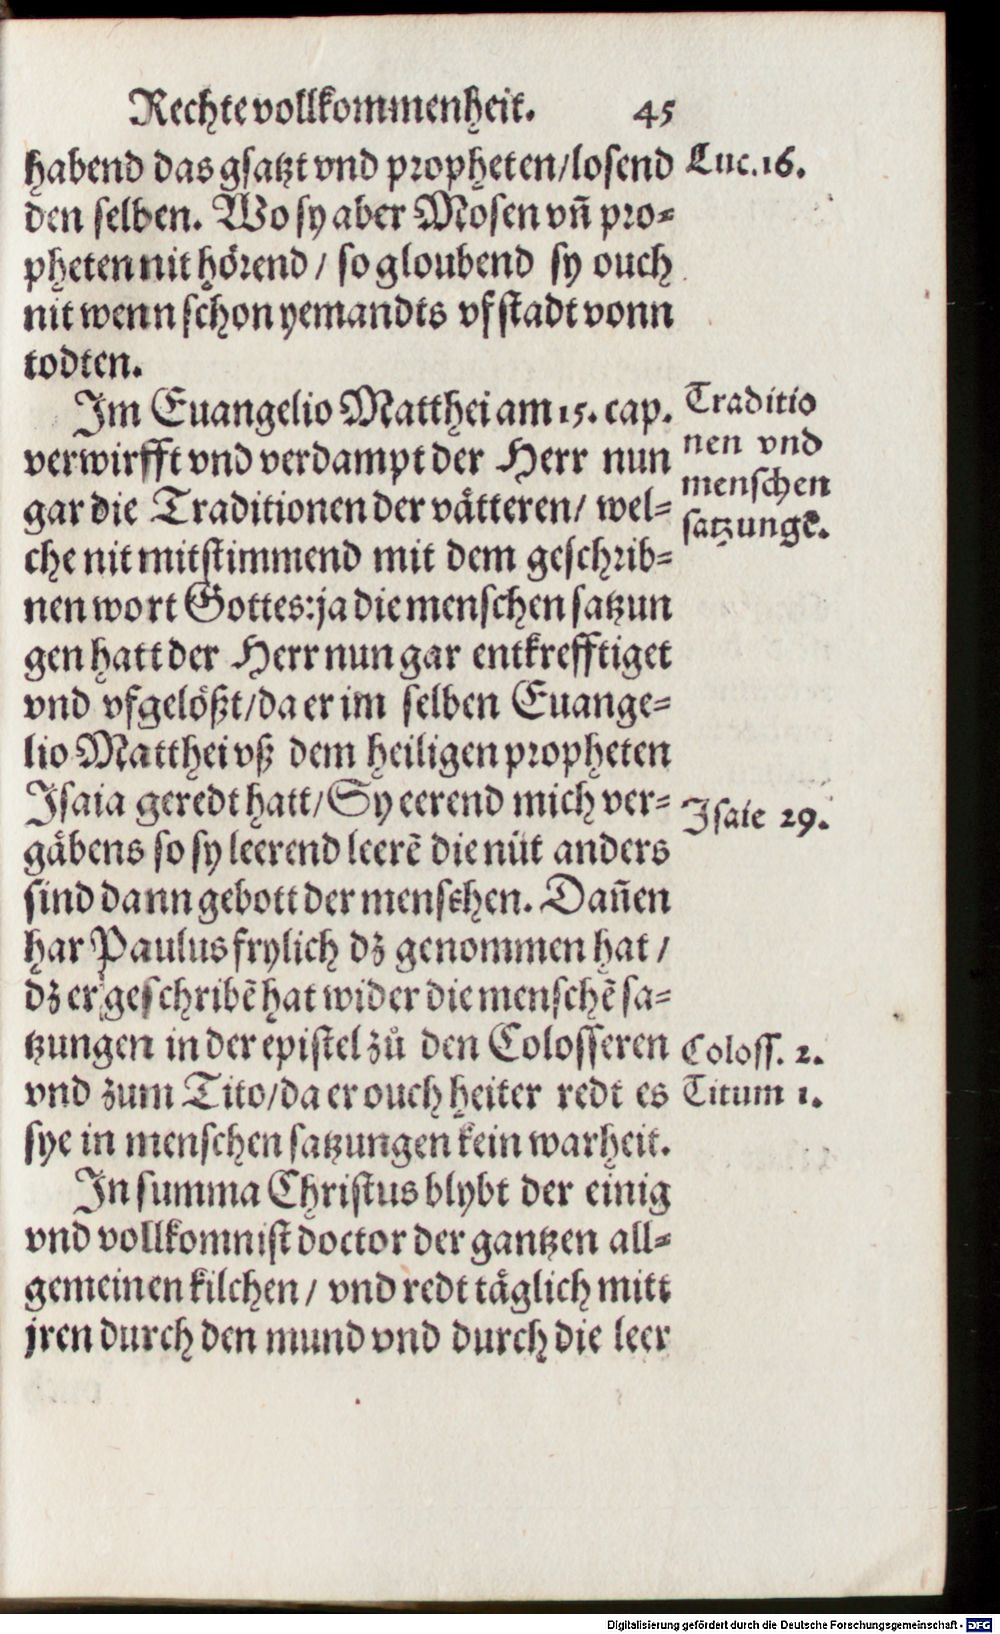 Rechte vollkommenheit. 45
habend das gsatzt vnd propheten/losend
den selben. Wo sy aber Mosen vñ pro⸗
pheten nit hörend / so gloubend sy ouch
nit wenn schon yemandts vfstadt vonn
todten.
Im Euangelio Matthei am 15. cap.
verwirfft vnd verdampt der Herr nun
gar die Traditionen der vätteren/ wel⸗
che nit mitstimmend mit dem geschrib⸗
nen wort Gottes: ja die menschen satzun
gen hatt der Herr nun gar entkrefftiget
vnd vfgelößt/da er im selben Euange⸗
lio Matthei vß dem heiligen propheten
Isaia geredt hatt/Sy eerend mich ver⸗
gäbens so sy leerend leerẽ die nüt anders
sind dann gebott der menschen. Dañen
har Paulus frylich dz genommen hat /
dz er geschribẽ hat wider die menschẽ sa⸗
tzungen in der epistel zů den Colosseren
vnd zum Tito/da er ouch heiter redt es
sye in menschen satzungen kein warheit.
In summa Christus blybt der einig
vnd vollkomnist doctor der gantzen all⸗
gemeinen kilchen/ vnd redt täglich mitt
jren durch den mund vnd durch die leer
Luc. 16.
Traditio
nen vnd
menschen
satzungẽ.
Isaie 29.
Coloss. 2.
Titum 1.
Digitalisierung gefördert durch die Deutsche Forschungsgemeinschaft - DFG